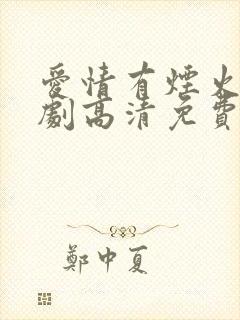 愛情有煙火
劇高清免費
鄭中夏